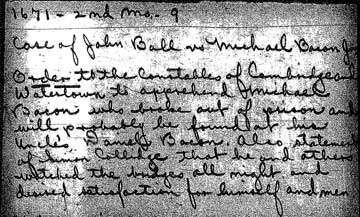 1671 - 2nd Mo. - 9
Case of John Ball vs Michael Bacon Jr
Order to the Constables of Cambridge and
Watertown to apprehend Michael
Bacon who broke out of prison and
will probably be found at his
Uncle's Daniel Bacon. Also statement
of Simon Colledge that he and others
watched the bridges all night and
desired satisfaction for himself and men